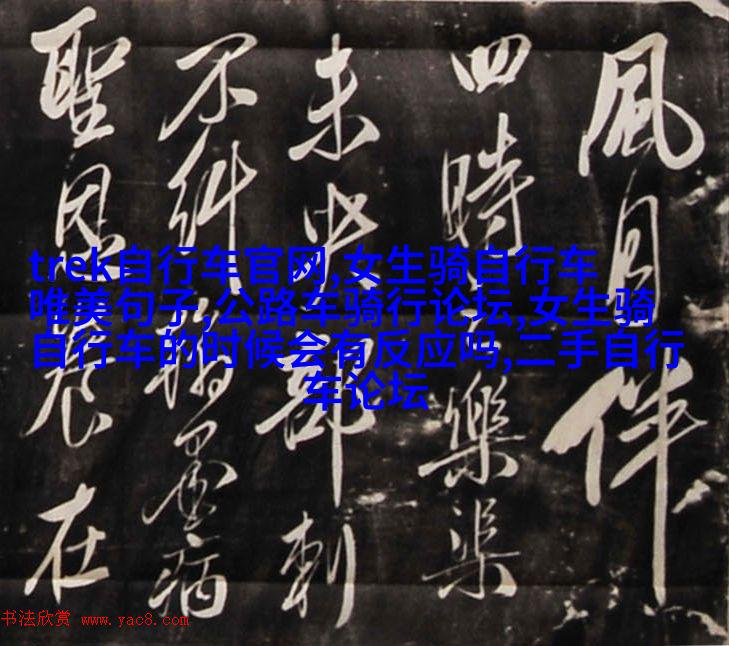 風月伴
四時樂渠
未央郡刺
不糾病
聖恩在
trek自行车官网,女生骑自行车
唯美句子,公路车骑行论坛,女生骑
自行车的时候会有反应吗,二手自行
车论坛
书法欣赏 www.yac8.com